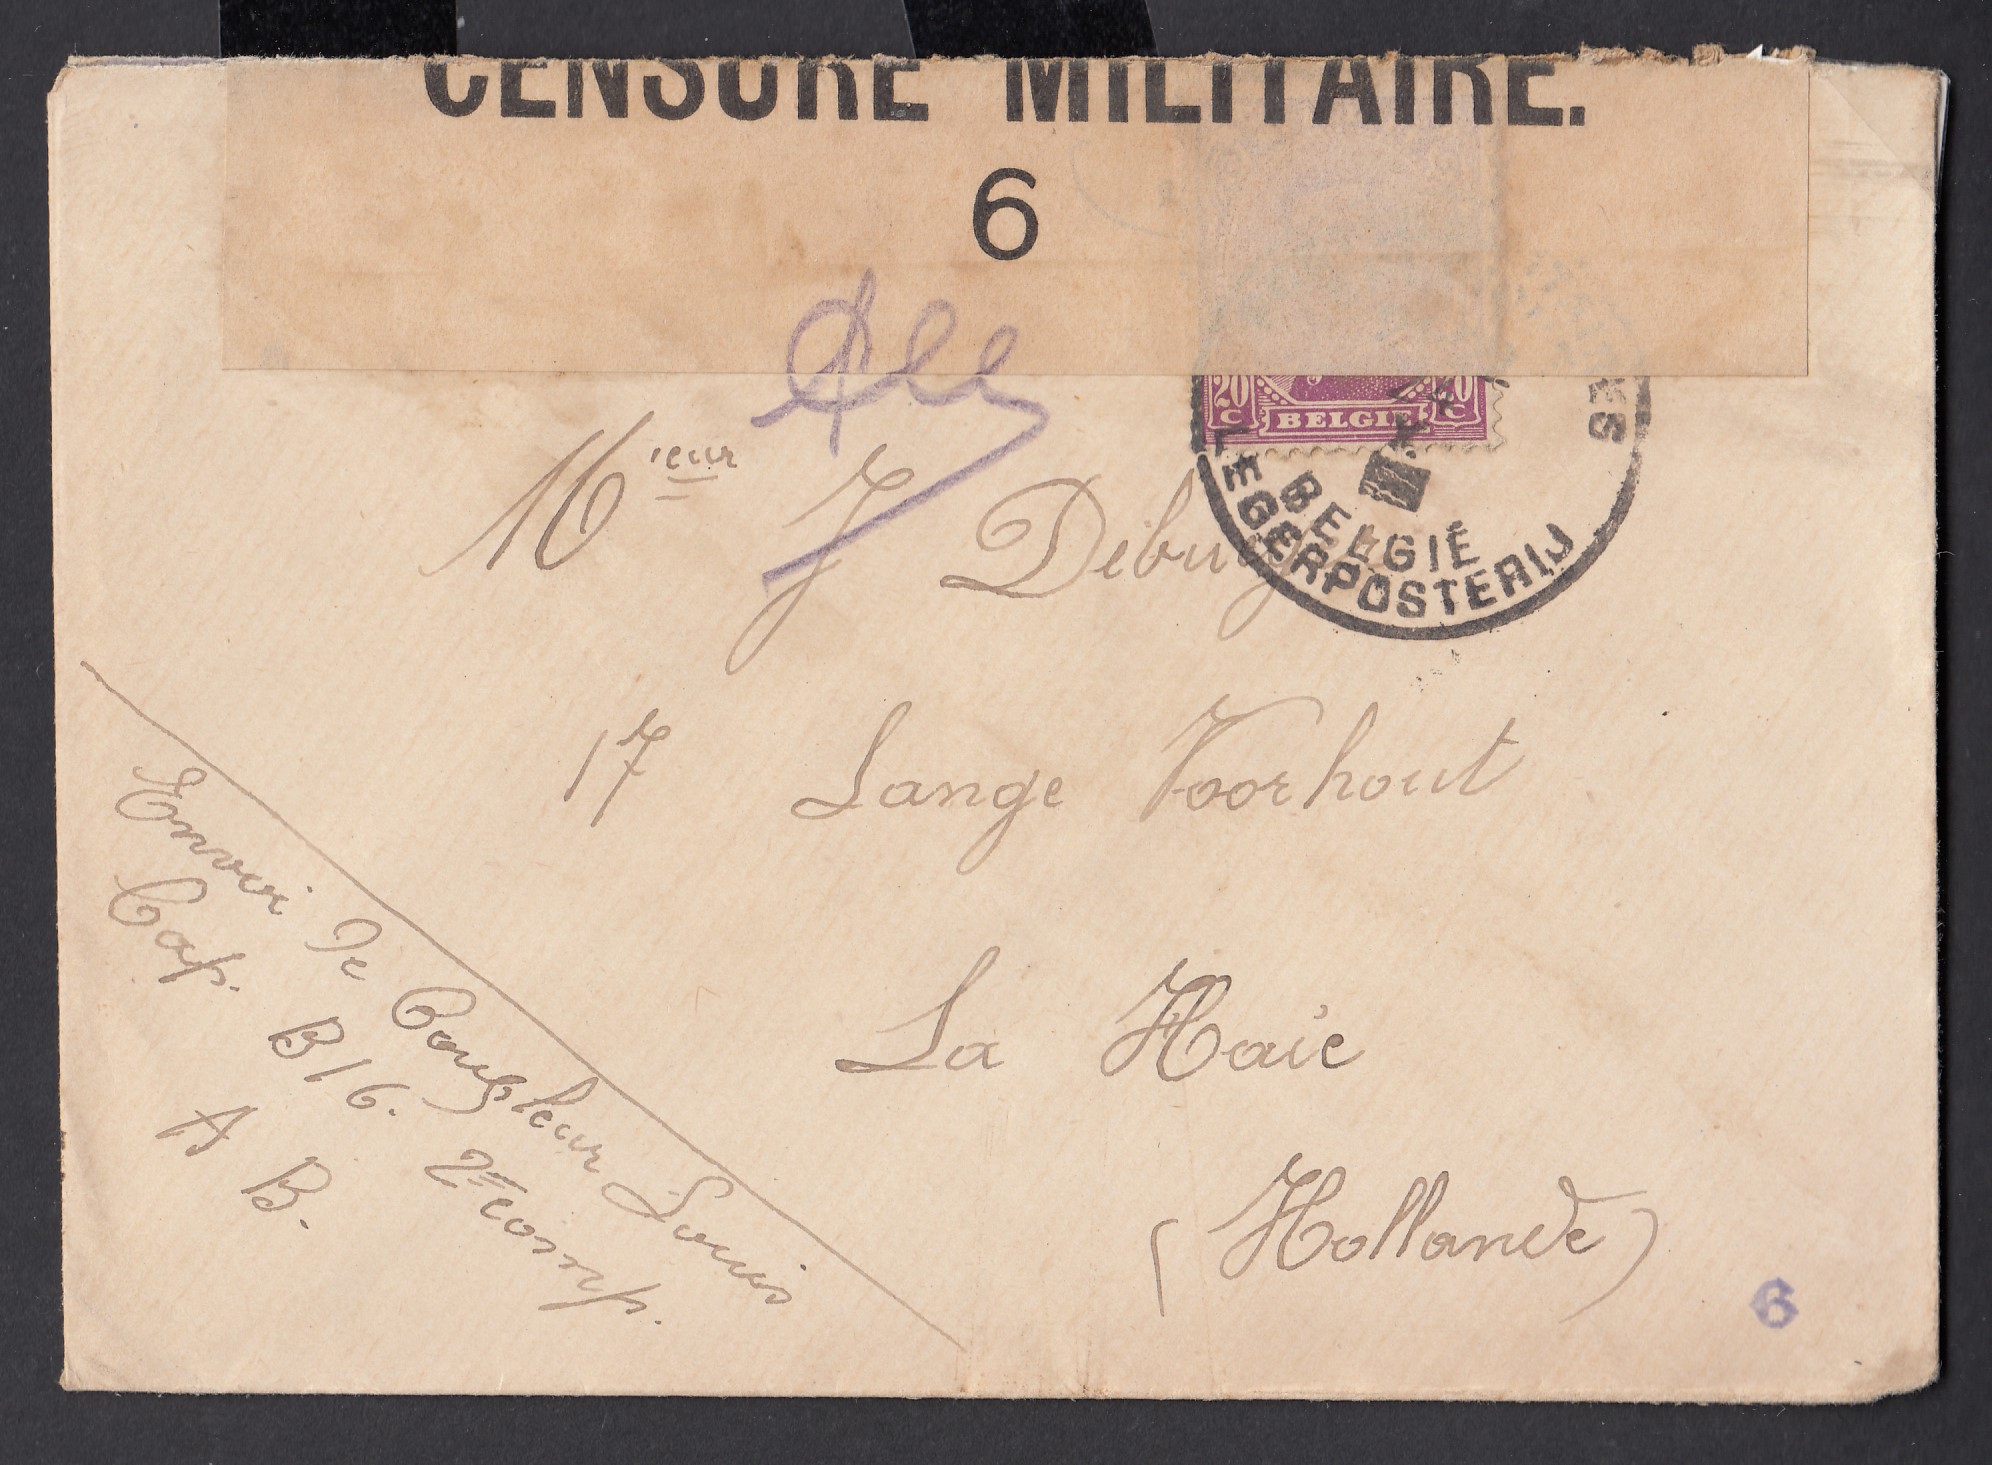 CENSURE MILITAIRE.
6
20 C BELGIE 20 C
BELGIË
LEGERPOSTERIJ
Mʳieur J
17 Lange Voorhout
La Haie
(Hollande)
Envoi de Coupleur Louis
Cap. B 16. 2me comp.
A B.
6